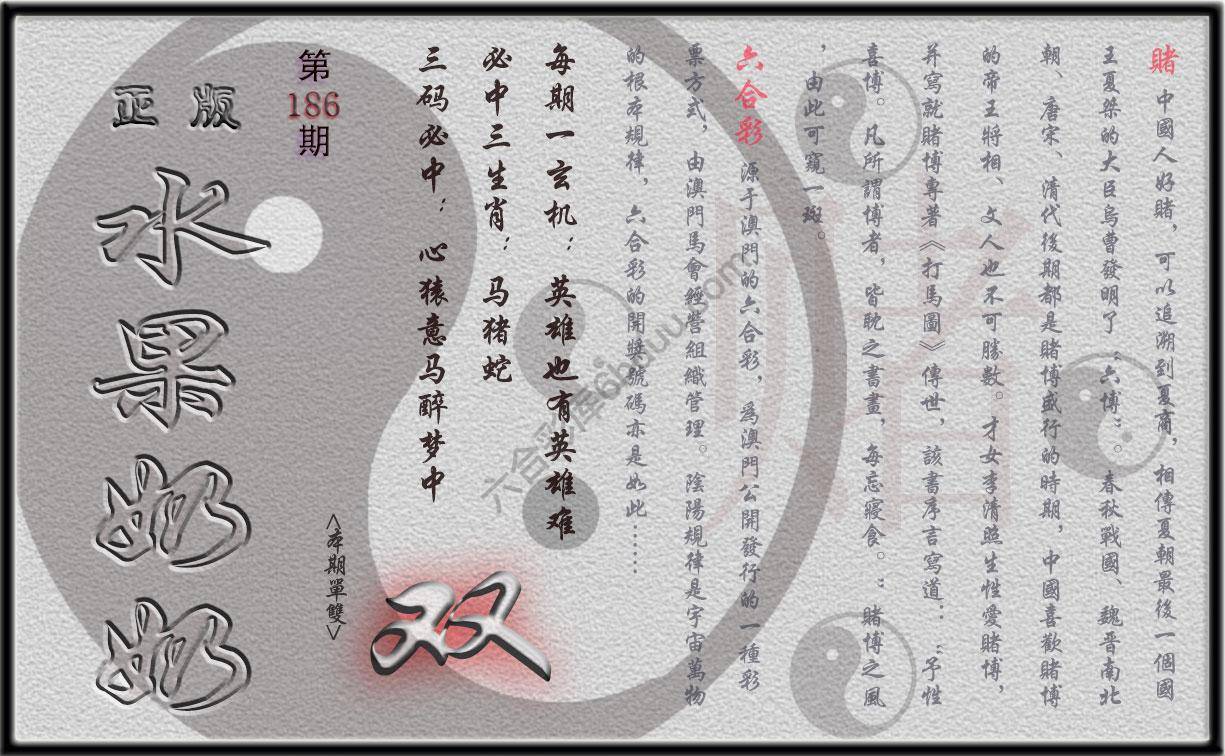 賭 中國人好賭，可以追溯到夏商，相傳夏朝最後一個國
王夏桀的大臣烏曹發明了“六博”。春秋戰國、魏晋南北
朝、唐宋、清代後期都是賭博盛行的時期，中國喜歡賭博
的帝王將相、文人也不可勝數。才女李清照生性愛賭博，
并寫就賭博專著《打馬圖》傳世，該書序言寫道：“予性
喜博。凡所謂博者，皆耽之書畫，每忘寢食。”賭博之風
，由此可窺一斑。
六合彩 源于澳門的六合彩，爲澳門公開發行的一種彩
票方式，由澳門馬會經營組織管理。陰陽規律是宇宙萬物
的根本規律，六合彩的開獎號碼亦是如此……
每期一玄机：英雄也有英雄难
必中三生肖：马猪蛇
三码必中：心猿意马醉梦中
第
186
期
<本期單雙>
双
正版
水果奶奶
賭
六合彩库6hduu.com